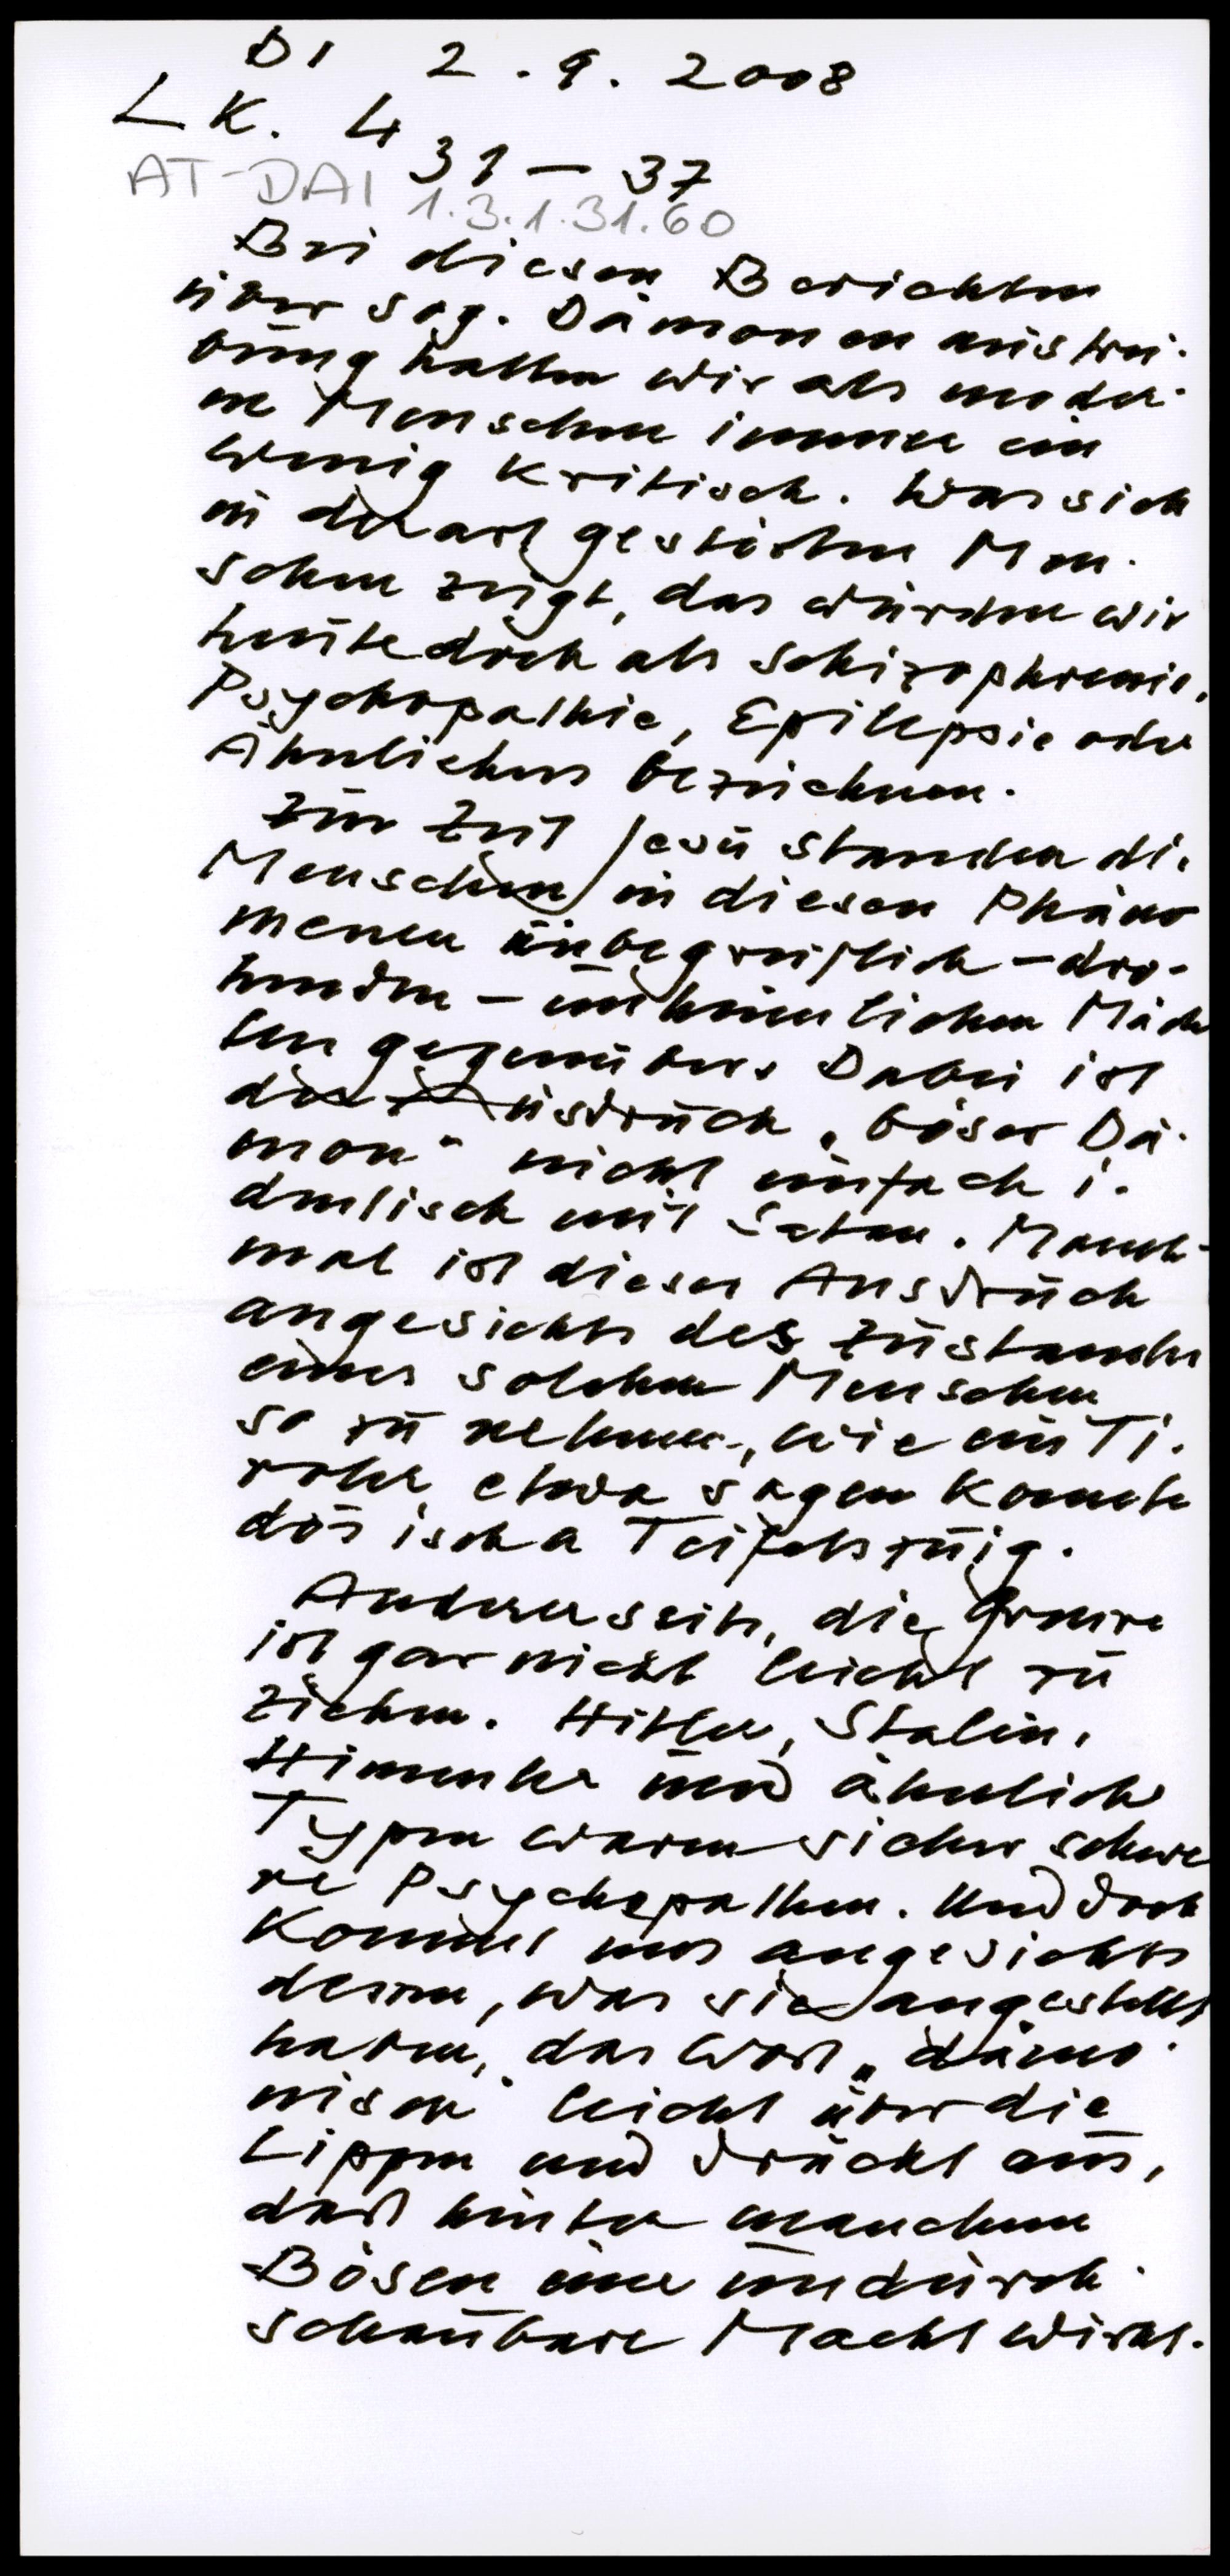 DI 2.9.2008
LK. 4 31-37
AT-DAI 1.3.1.31.60
Bei diesen Berichten
über sog. Dämonenaustrei-
bung halten wir als moder-
ne Menschen immer ein
wenig kritisch. Was sich
in derart gestörten Men-
schen zeigt, das würden wir
heute doch als Schizophrenie,
Psychopathie, Epilepsie oder
Ähnliches bezeichnen.
Zur Zeit Jesu standen die
Menschen in diesen Phäno
menen unbegreiflich - dro-
henden - unheimlichen Mäch
ten gegenüber. Dabei ist
der Ausdruck "böser Dä-
mon" nicht einfach i-
dentisch mit Satan. Manch-
mal ist dieser Ausdruck
angesichts des Zustandes
eines solchen Menschen
so zu nehmen, wie ein Ti-
roler etwa sagen konnte
dös isch a Teifelszuig.
Andererseits, die Grenze
ist gar nicht leicht zu
ziehen. Hitler, Stalin,
Himmler und ähnliche
Typen waren sicher schwe
re Psychopathen. Und doch
kommt uns angesichts
dessen, was sie angestellt
haben, das Wort "dämo-
nisch" leicht über die
Lippen und drückt aus,
daß hinter manchem
Bösen eine undurch-
schaubare Macht wirkt.